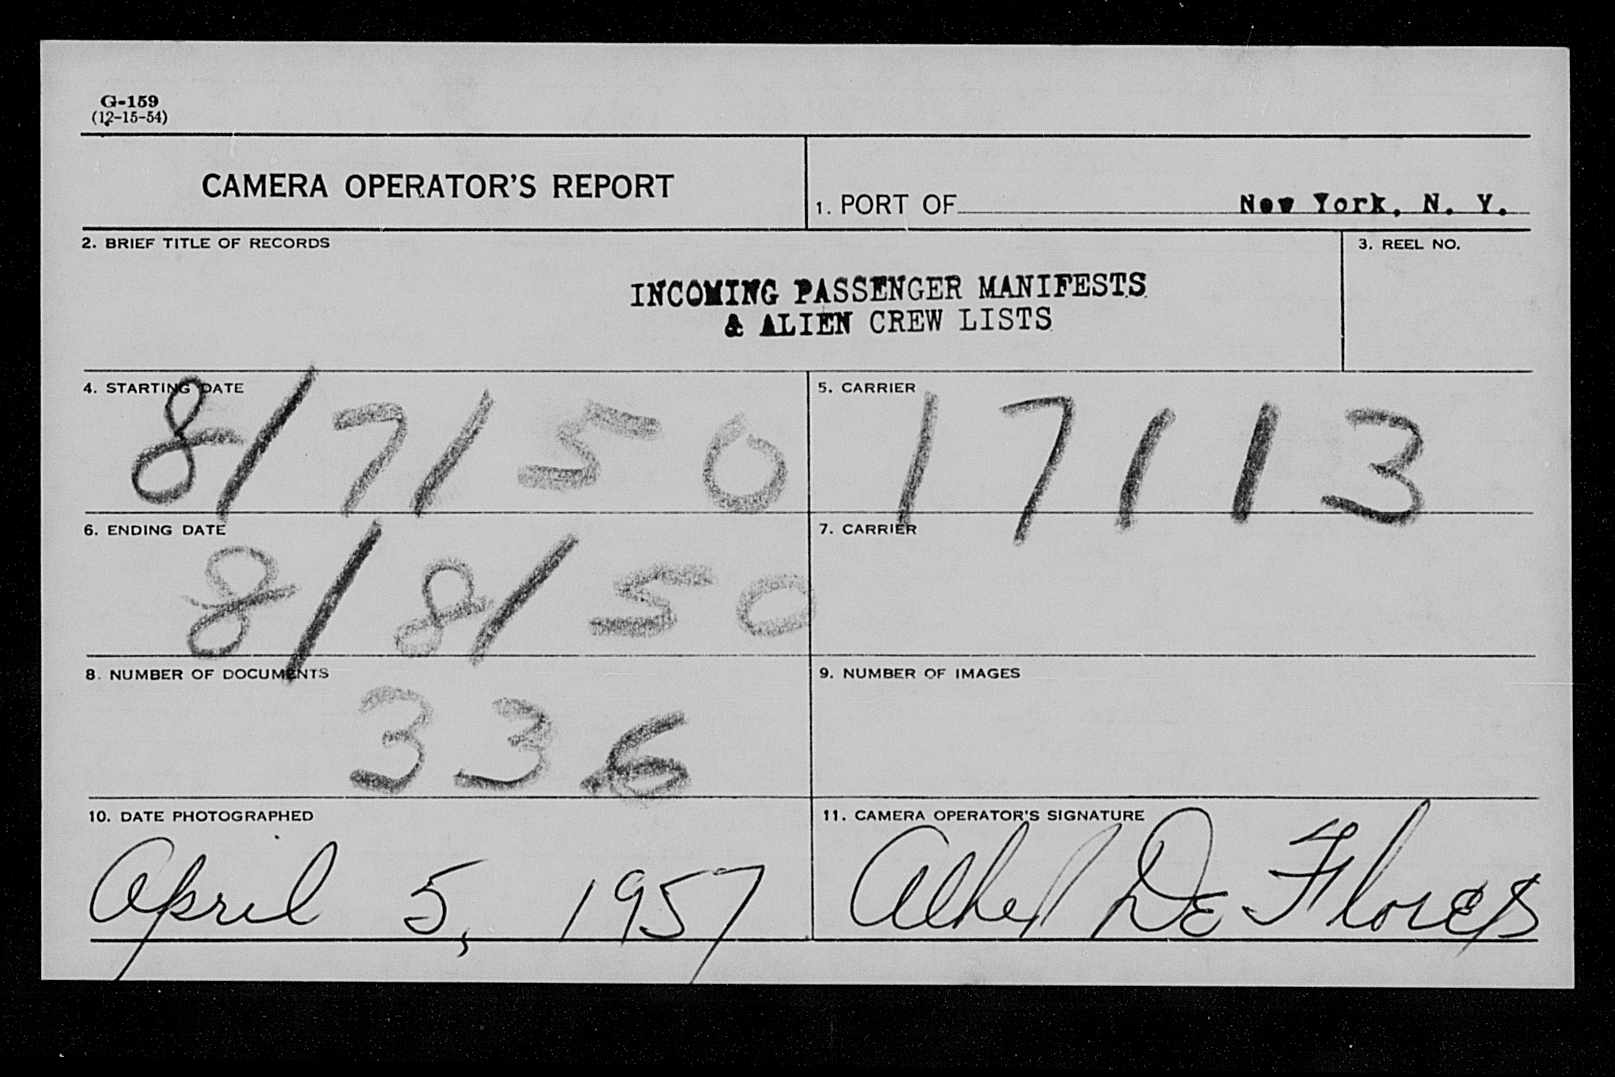 G-159
(12-15-54)
CAMERA OPERATOR'S REPORT
1. PORT OF New York, N. Y.
2. BRIEF TITLE OF RECORDS
3. REEL NO.
INCOMING PASSENGER MANIFESTS
& ALIEN CREW LISTS
4. STARTING DATE
8/7/50
5. CARRIER
17113
6. ENDING DATE
8/8/50
7. CARRIER
8. NUMBER OF DOCUMENTS
336
9. NUMBER OF IMAGES
10. DATE PHOTOGRAPHED
April 5, 1957
11. CAMERA OPERATOR'S SIGNATURE
De Flores